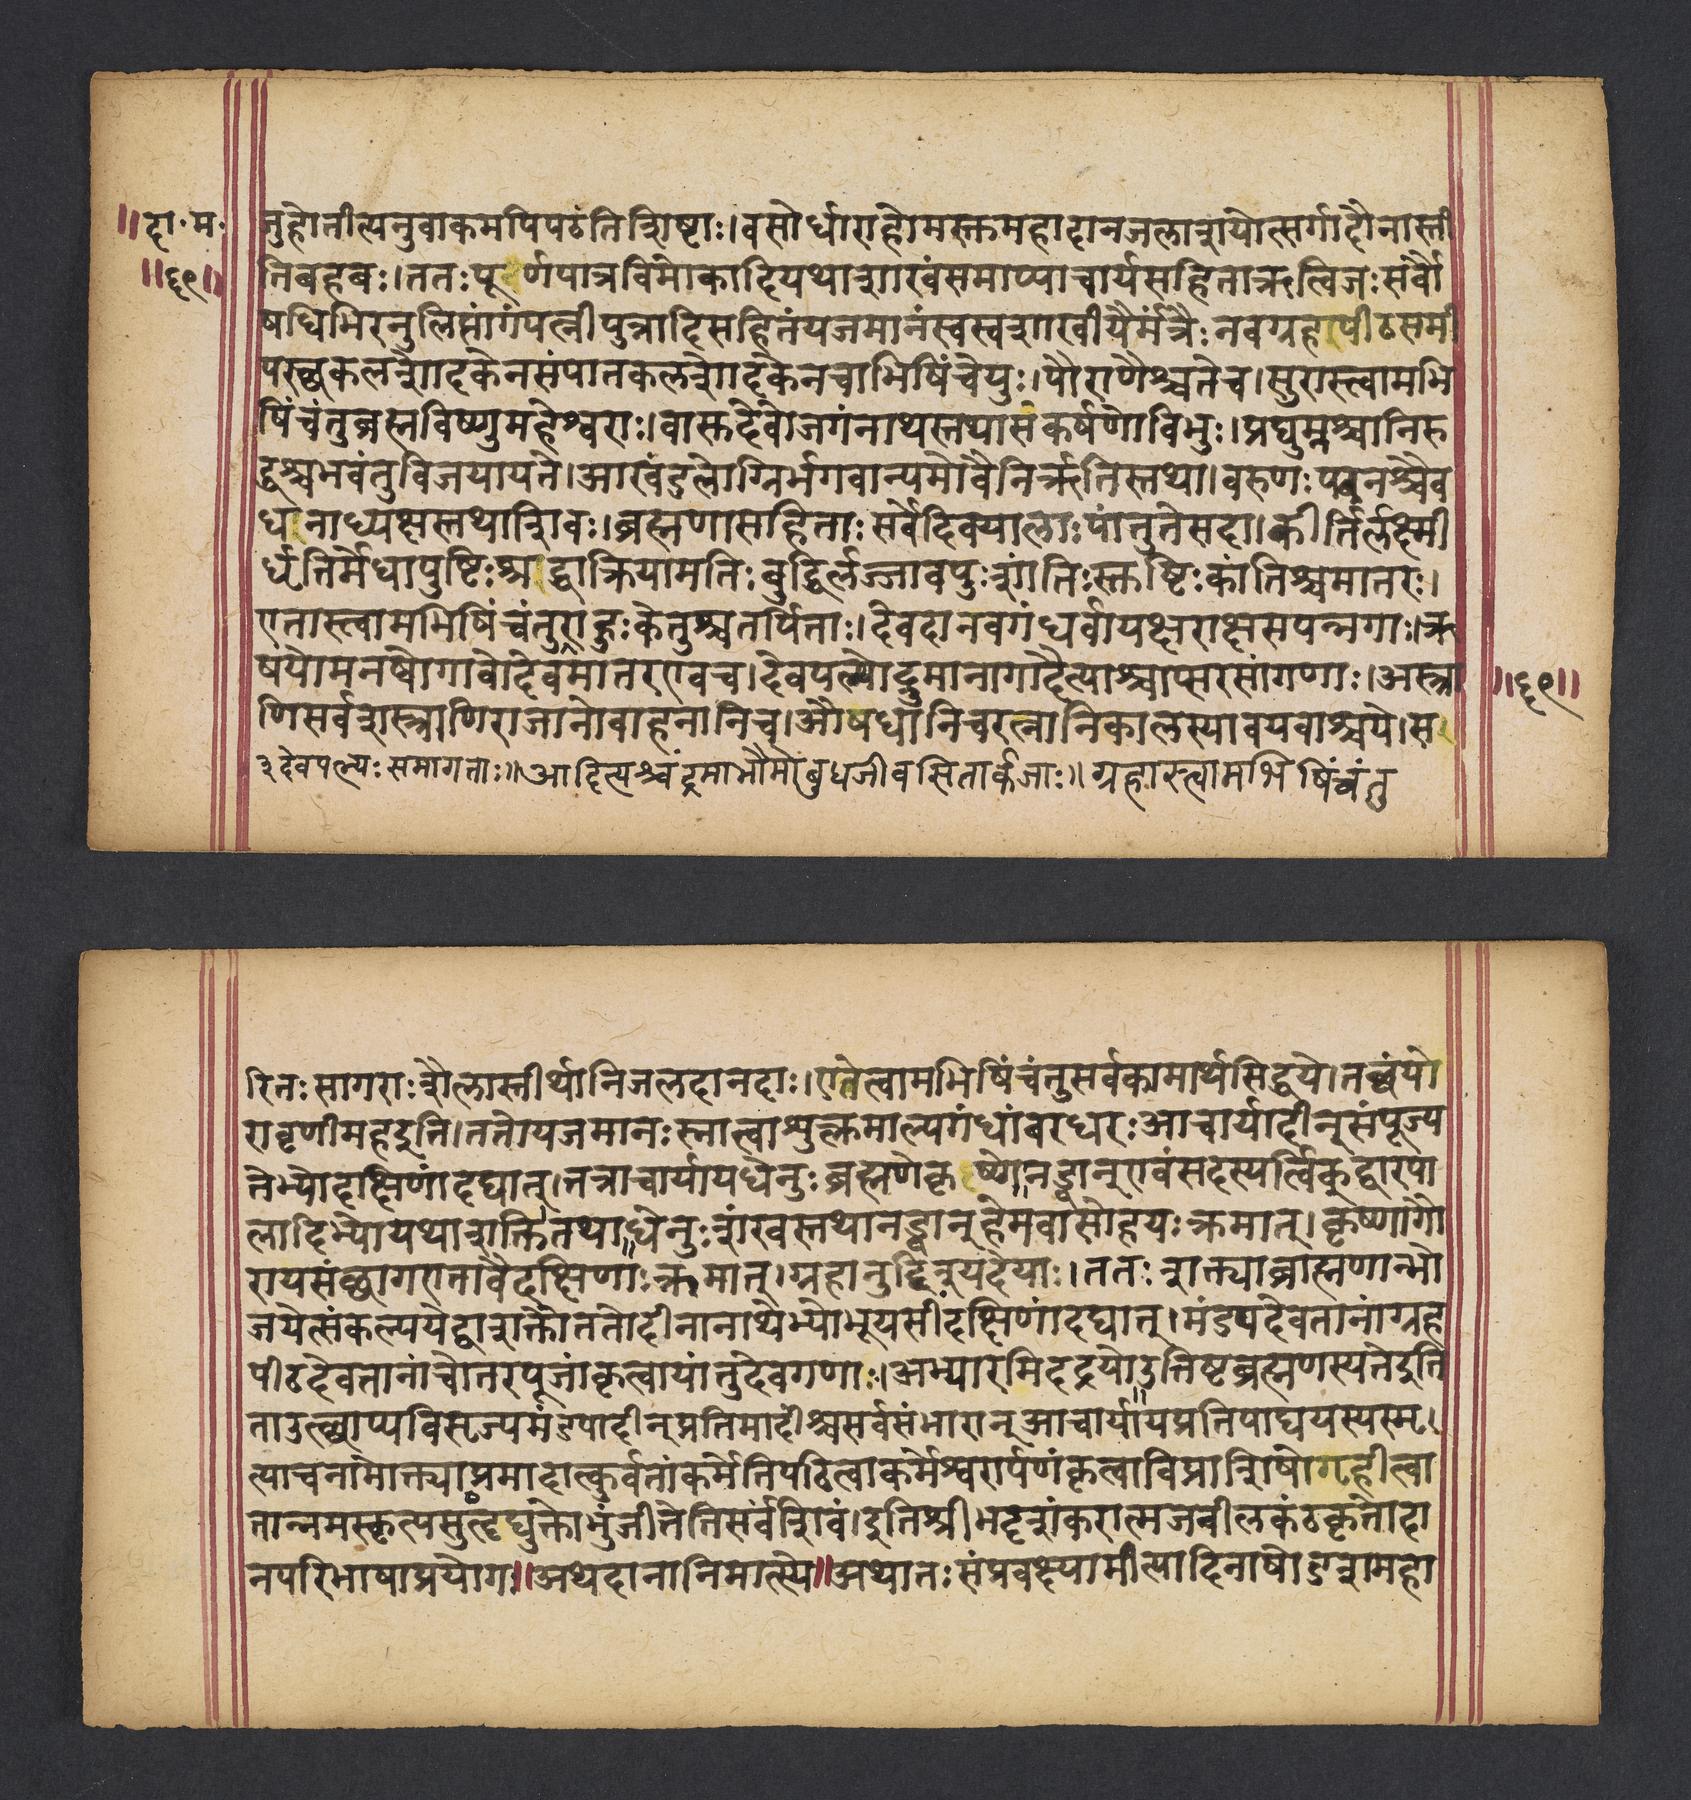 ॥दा॰म॰
॥६९॥
जुहोतीत्यनुवाकमपिपठंतिशिष्टाः।वसोर्धाराहोमस्क्तमहादानजलाशयोत्सर्गादौनास्ती
तिबहवः।ततःपूर्णपात्रविमोकादियथाशाखंसमाप्याचार्यसहिताऋत्विजःसर्वौ
षधिभिरनुलिप्तांगंपत्नीपुत्रादिसहितंयजमानंस्वस्वशाखीयैर्मंत्रैःनवग्रहपीठसमी
पस्छकलशोदकेनसंपातकलशोदकेनचाभिषिंचेयुः।पौराणैश्चतेच।सुरास्त्वामभि
षिंचंतुब्रह्मविष्णुमहेश्वराः।वास्तदेवोजगंनाथस्तथासंकर्षणोविभुः।प्रद्युम्नश्चानिरु
द्धश्चभवंतुविजयायते।आखंडलोग्निर्भगवान्यमोवैनिर्ऋतिस्तथा।वरुणःपवनश्चैव
धनाध्यक्षस्तथाशिवः।ब्रह्मणासहिताःसर्वेदिक्पालाःपांतुतेसदा।कीर्तिर्लक्ष्मी
र्धृतिर्मेधापुष्टिःश्रद्धाक्रियामतिःबुद्धिर्लज्जावपुःशंगतिःस्क्तष्टिःकांतिश्चमातरः।
एतास्त्वामभिषिंचंतुराहुःकेतुश्चतर्पिताः।देवदानवगंधर्वायक्षराक्षसपन्नगाः।ऋ
षयोमनष्वोगावोदेवमातरएवच।देवपत्न्योद्रुमानागादैत्याश्चाप्सरसांगणाः।अस्त्रा
॥६९॥
णिसर्वशास्त्राणिराजानोवाहनानिच।औषधानिचरत्नानिकालस्यावयवाश्चये।स
३देवपत्न्यःसमागताः॥आदित्यश्चंद्रमाभौमोबुधजीवसितार्कजाः॥ग्रहास्त्वामभिषिंचंतु
रितःसागराःशैलास्तीर्थानिजलदानदाः।एतेत्वामभिषिंचंतुसर्वकामार्थसिद्धये।तछंयो
रावृणीमहइति।ततोयजमानःस्नात्वाशुक्लमाल्यगंधांबरधरःआचार्यादीन्संपूज्य
तेभ्योदक्षिणांदद्यात्।तत्राचार्यायधेनुःब्रह्मणेकृष्णोनड्वान्एवंसदस्यर्त्विक्द्वारपा
लादिभ्योयथाशक्तितथाधेनुःशंखस्तथानड्वान्हेमवासोहयःक्रमात्।कृष्णागौ
रायसंछागएतावैदक्षिणाःक्रमात्।ग्रहानुद्दिश्यदेयाः।ततःशक्त्याब्राह्मणान्भो
जयेत्संकल्पयेद्वाशक्तौततोदीनानाथेभ्योभूयसींदक्षिणांदद्यात्।मंडपदेवतानांग्रह
पीठदेवतानांचोत्तरपूजांकृत्वायांतुदेवगणाः।अभ्यारमिदद्रयोउत्तिष्टब्रह्मणस्पतेइति
ताउत्थाप्यविसृज्यमंडपादीन्प्रतिमादींश्चसर्वसंभारान्आचार्यायप्रतिपाद्ययस्यस्मृ
त्याचनामोक्त्याप्रमादात्कुर्वतांकर्मेतिपठित्वाकर्मेश्वरार्पणंकृत्वाविप्राशिषोगृहीत्वा
तान्नमस्कृत्यसुहृद्युक्तोभुंजीतेतिसर्वंशिवं।इतिश्रीभट्टशंकरात्मजनीलकंठकृतोदा
नपरिभाषाप्रयोग॥अथदानानिमात्स्ये॥अथातःसंप्रवक्ष्यामीत्यादिनाषोडशमहा